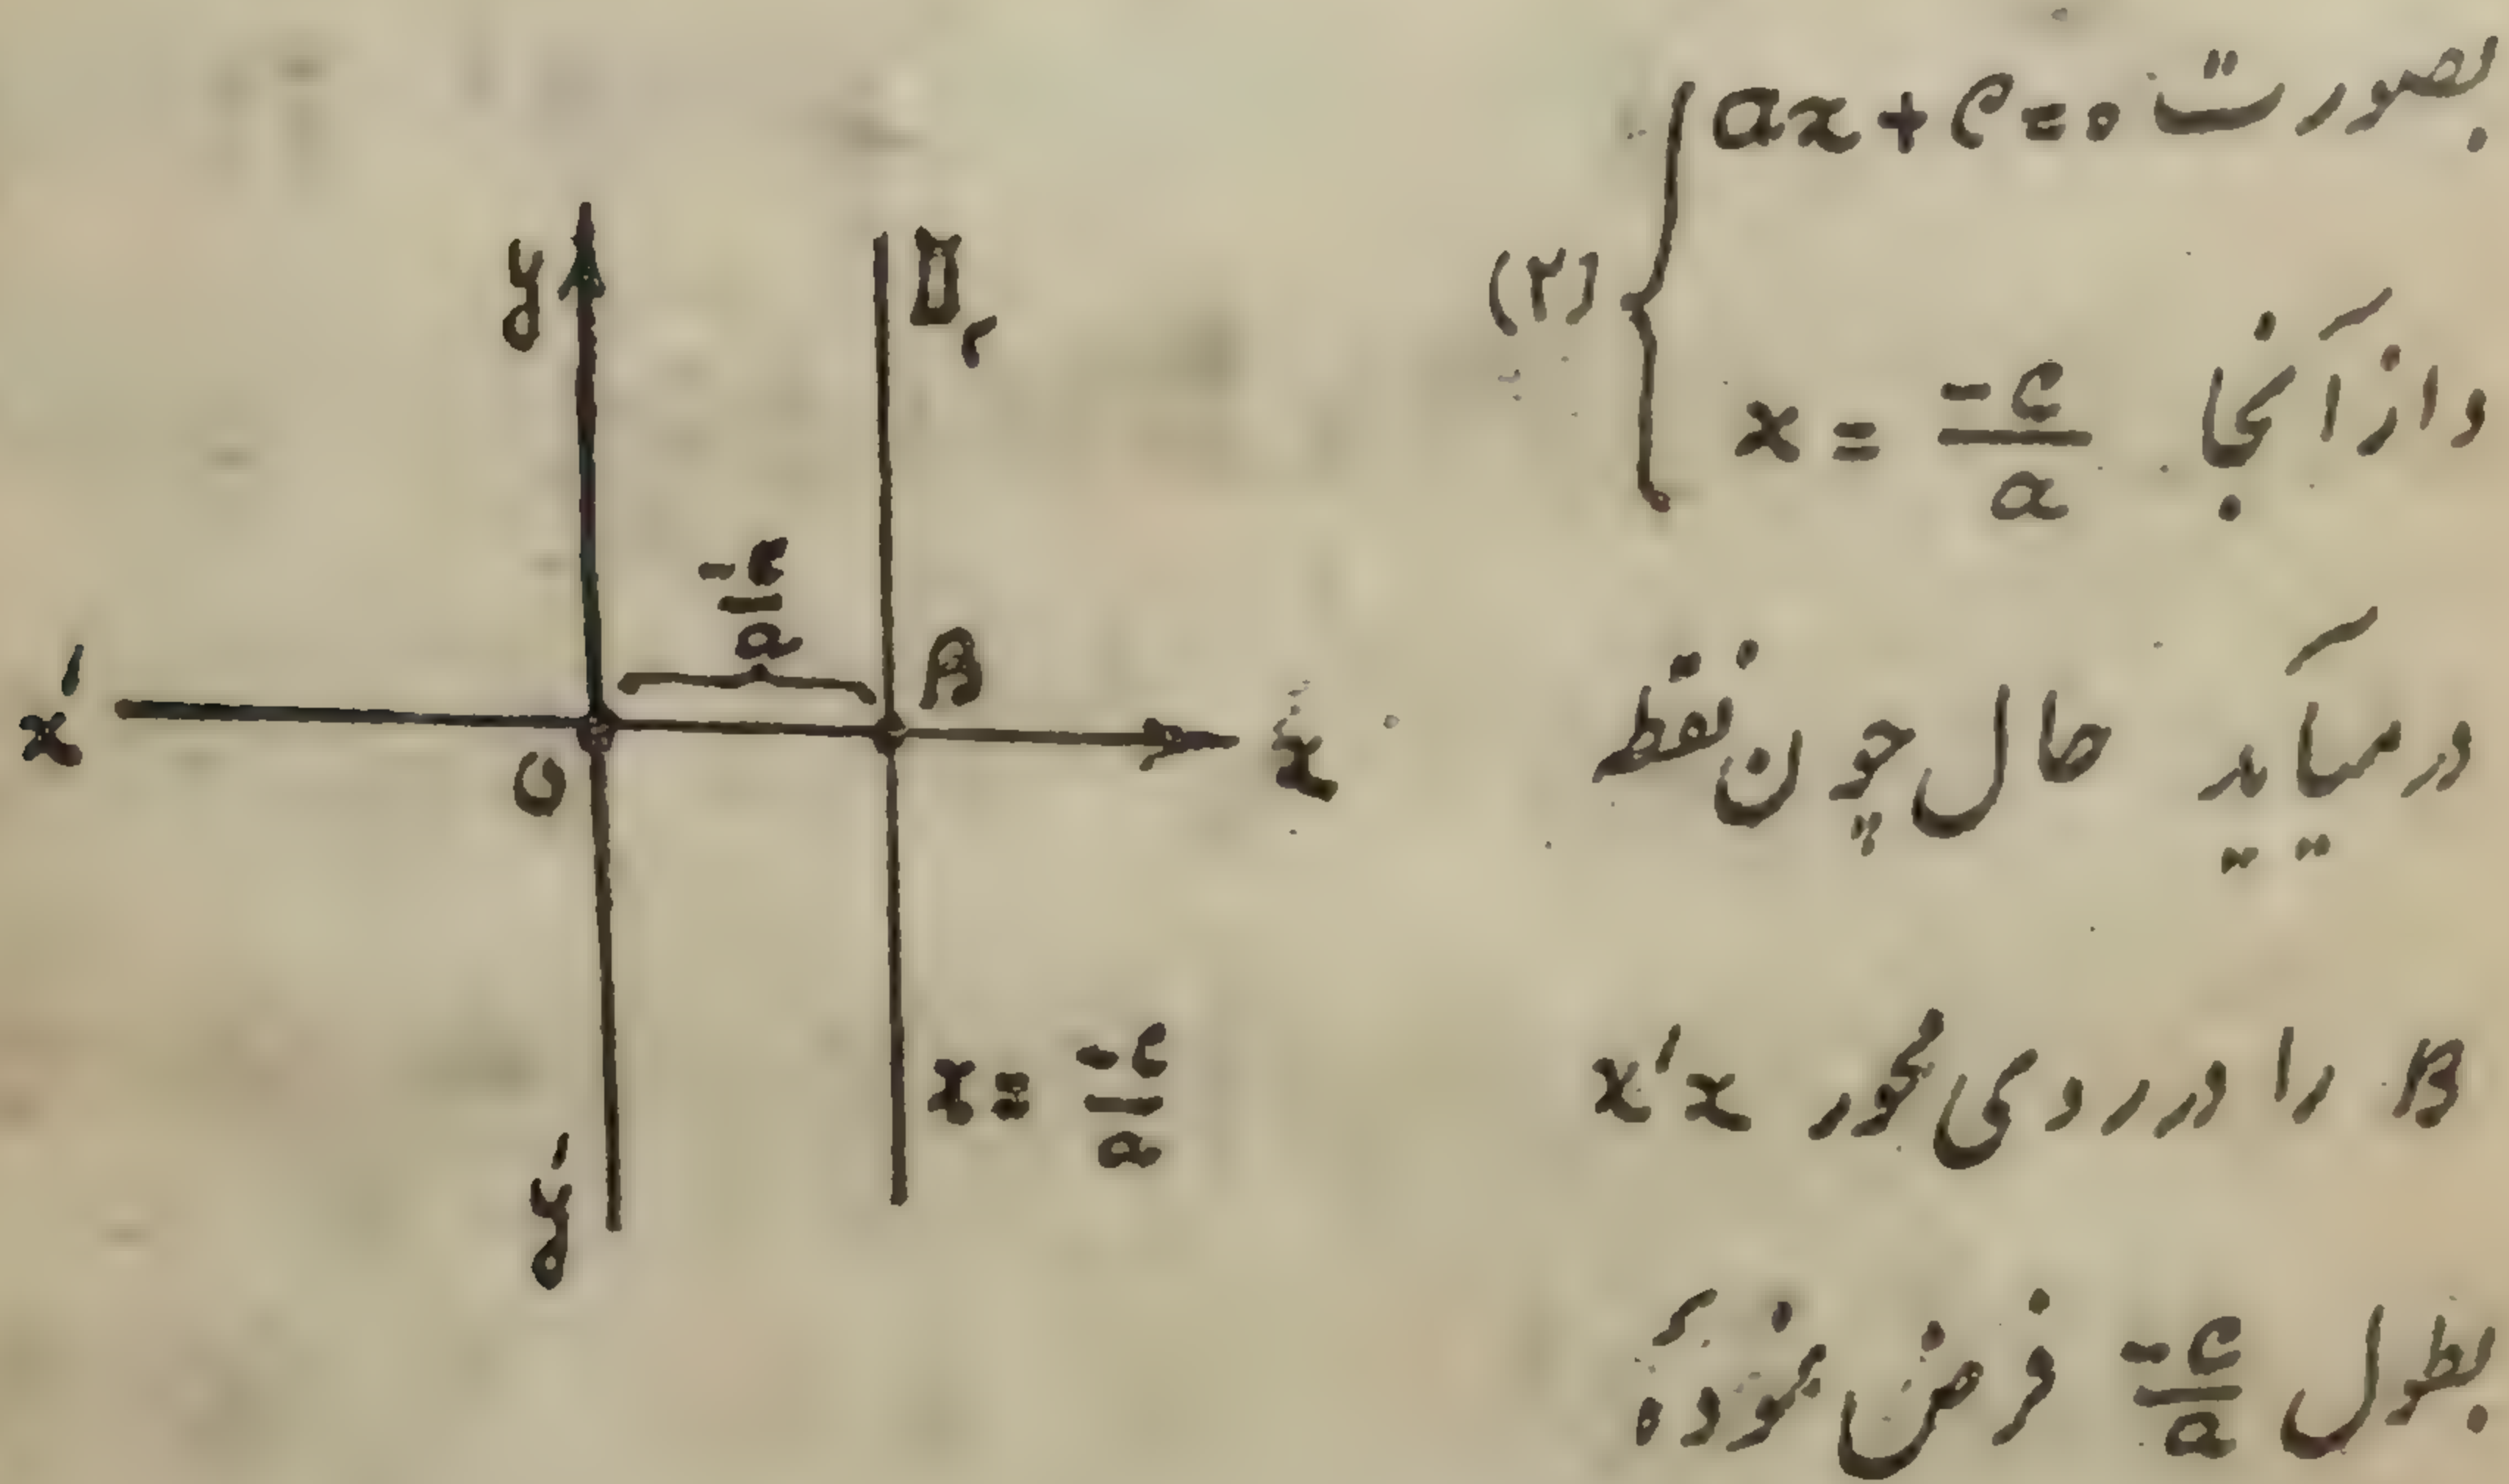 بصورت ax+c=0
(۲)
وازآنجا x = -c/a
درمیآید حال چون نقطه
B را در روی محور x'x
بطول -c/a فرض نموده
y
D۲
-c/a
B
x'
O
x
x = -c/a
y'